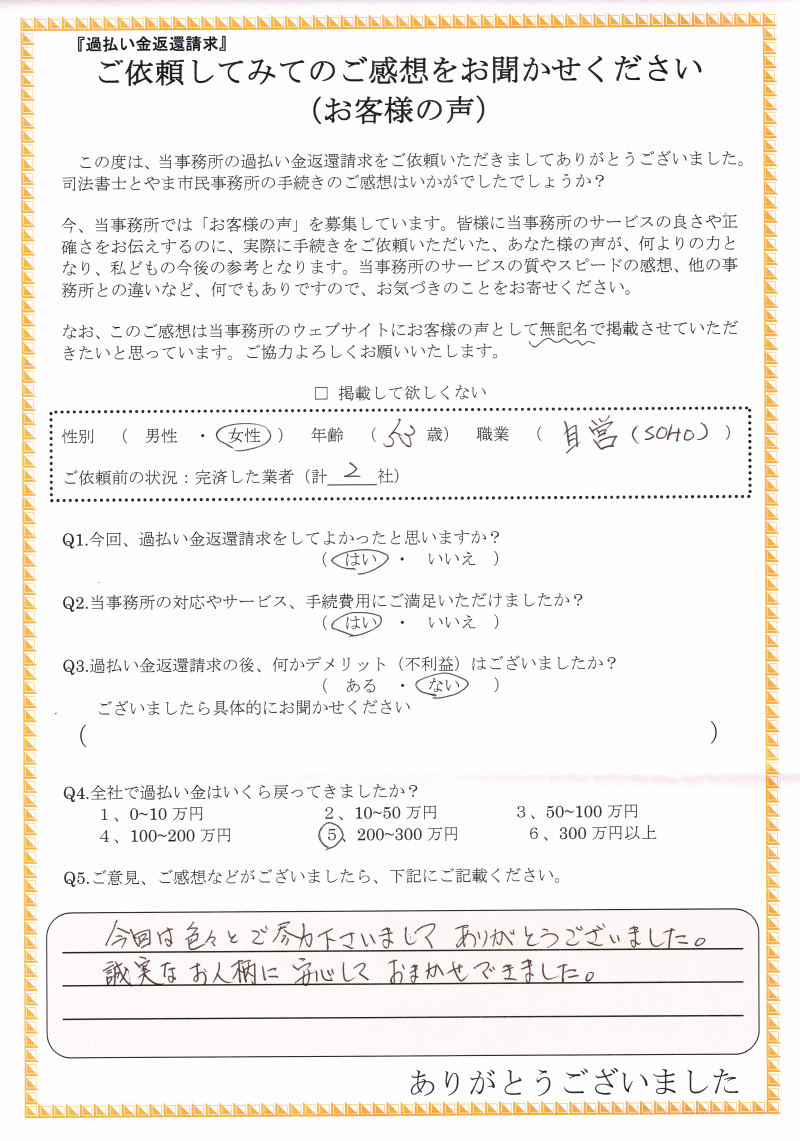 『過払い金返還請求』
ご依頼してみてのご感想をお聞かせください
（お客様の声）
この度は、当事務所の過払い金返還請求をご依頼いただきましてありがとうございました。
司法書士とやま市民事務所の手続きのご感想はいかがでしたでしょうか？
今、当事務所では「お客様の声」を募集しています。皆様に当事務所のサービスの良さや正
確さをお伝えするのに、実際に手続きをご依頼いただいた、あなた様の声が、何よりの力と
なり、私どもの今後の参考となります。当事務所のサービスの質やスピードの感想、他の事
務所との違いなど、何でもありですので、お気づきのことをお寄せください。
なお、このご感想は当事務所のウェブサイトにお客様の声として無記名で掲載させていただ
きたいと思っています。ご協力よろしくお願いいたします。
□ 掲載して欲しくない
性別 （ 男性 ・ 女性 ） 年齢 （ 53 歳） 職業 （ 自営（SOHO） ）
ご依頼前の状況：完済した業者（計 2 社）
Q1.今回、過払い金返還請求をしてよかったと思いますか？
（ はい ・ いいえ ）
Q2.当事務所の対応やサービス、手続費用にご満足いただけましたか？
（ はい ・ いいえ ）
Q3.過払い金返還請求の後、何かデメリット（不利益）はございましたか？
（ ある ・ ない ）
ございましたら具体的にお聞かせください
（ ）
Q4.全社で過払い金はいくら戻ってきましたか？
１、0~10 万円 ２、10~50 万円 ３、50~100 万円
４、100~200 万円 ５、200~300 万円 ６、300 万円以上
Q5.ご意見、ご感想などがございましたら、下記にご記載ください。
今回は色々とご尽力下さいまして ありがとうございました。
誠実なお人柄に 安心して おまかせできました。
ありがとうございました